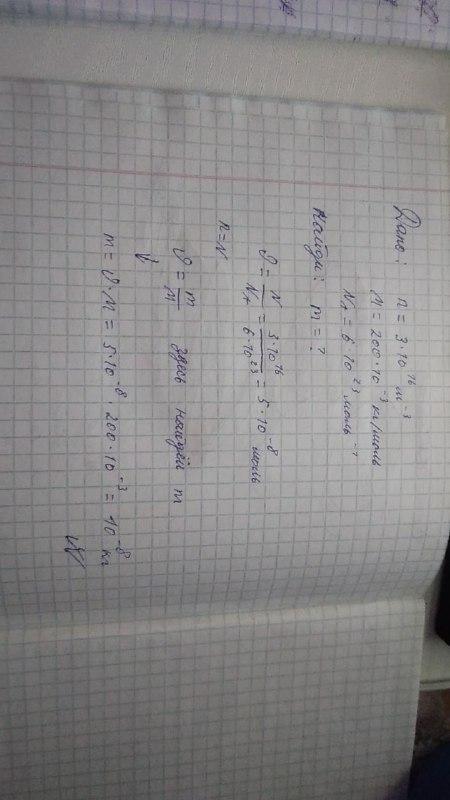 Дано: n = 3·10¹⁶ м⁻³
M = 200·10⁻³ кг/моль
N_A = 6·10²³ моль⁻¹
Найди: m = ?
ν = N/N_A = 3·10¹⁶/6·10²³ = 5·10⁻⁸ моль
n=N
ν = m/M здесь найдём m
↓
m = ν·M = 5·10⁻⁸·200·10⁻³ = 10⁻⁸ кг